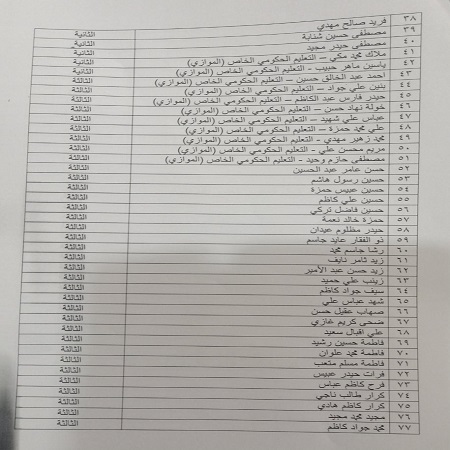 ٣٨ فريد صالح مهدي
٣٩ مصطفى حسين شنابة الثانية
٤٠ مصطفى حيدر مجيد الثانية
٤١ ملاك محمد مكي – التعليم الحكومي الخاص (الموازي) الثانية
٤٢ ياسين ماهر حبيب - التعليم الحكومي الخاص (الموازي) الثانية
٤٣ احمد عبد الخالق حسين – التعليم الحكومي الخاص (الموازي) الثالثة
٤٤ بنين علي جواد – التعليم الحكومي الخاص (الموازي) الثالثة
٤٥ حيدر فارس عبد الكاظم – التعليم الحكومي الخاص (الموازي) الثالثة
٤٦ خولة نهاد حسن – التعليم الحكومي الخاص (الموازي) الثالثة
٤٧ عباس علي شهيد – التعليم الحكومي الخاص (الموازي) الثالثة
٤٨ علي محمد حمزة – التعليم الحكومي الخاص (الموازي) الثالثة
٤٩ محمد زهير مهدي - التعليم الحكومي الخاص (الموازي) الثالثة
٥٠ مريم محسن علي - التعليم الحكومي الخاص (الموازي) الثالثة
٥١ مصطفى حازم وحيد - التعليم الحكومي الخاص (الموازي) الثالثة
٥٢ حسن عامر عبد الحسين الثالثة
٥٣ حسين رسول هاشم الثالثة
٥٤ حسين عبيس حمزة الثالثة
٥٥ حسين علي كاظم الثالثة
٥٦ حسين فاضل تركي الثالثة
٥٧ حمزة خالد نعمة الثالثة
٥٨ حيدر مظلوم عيدان الثالثة
٥٩ ذو الفقار عايد جاسم الثالثة
٦٠ رشا جاسم محمد الثالثة
٦١ زيد ثامر نايف الثالثة
٦٢ زيد حسن عبد الأمير الثالثة
٦٣ زينب علي حميد الثالثة
٦٤ سيف جواد كاظم الثالثة
٦٥ شهد عباس علي الثالثة
٦٦ صهاب عقيل حسن الثالثة
٦٧ ضحى كريم غازي الثالثة
٦٨ علي اقبال سعيد الثالثة
٦٩ فاطمة حسين رشيد الثالثة
٧٠ فاطمة محمد علوان الثالثة
٧١ فاطمة مسلم متعب الثالثة
٧٢ فرات حيدر عبيس الثالثة
٧٣ فرح كاظم عباس الثالثة
٧٤ كرار طالب ناجي الثالثة
٧٥ كرار كاظم هادي الثالثة
٧٦ مجيد محمد مجيد الثالثة
٧٧ محمد جواد كاظم الثالثة